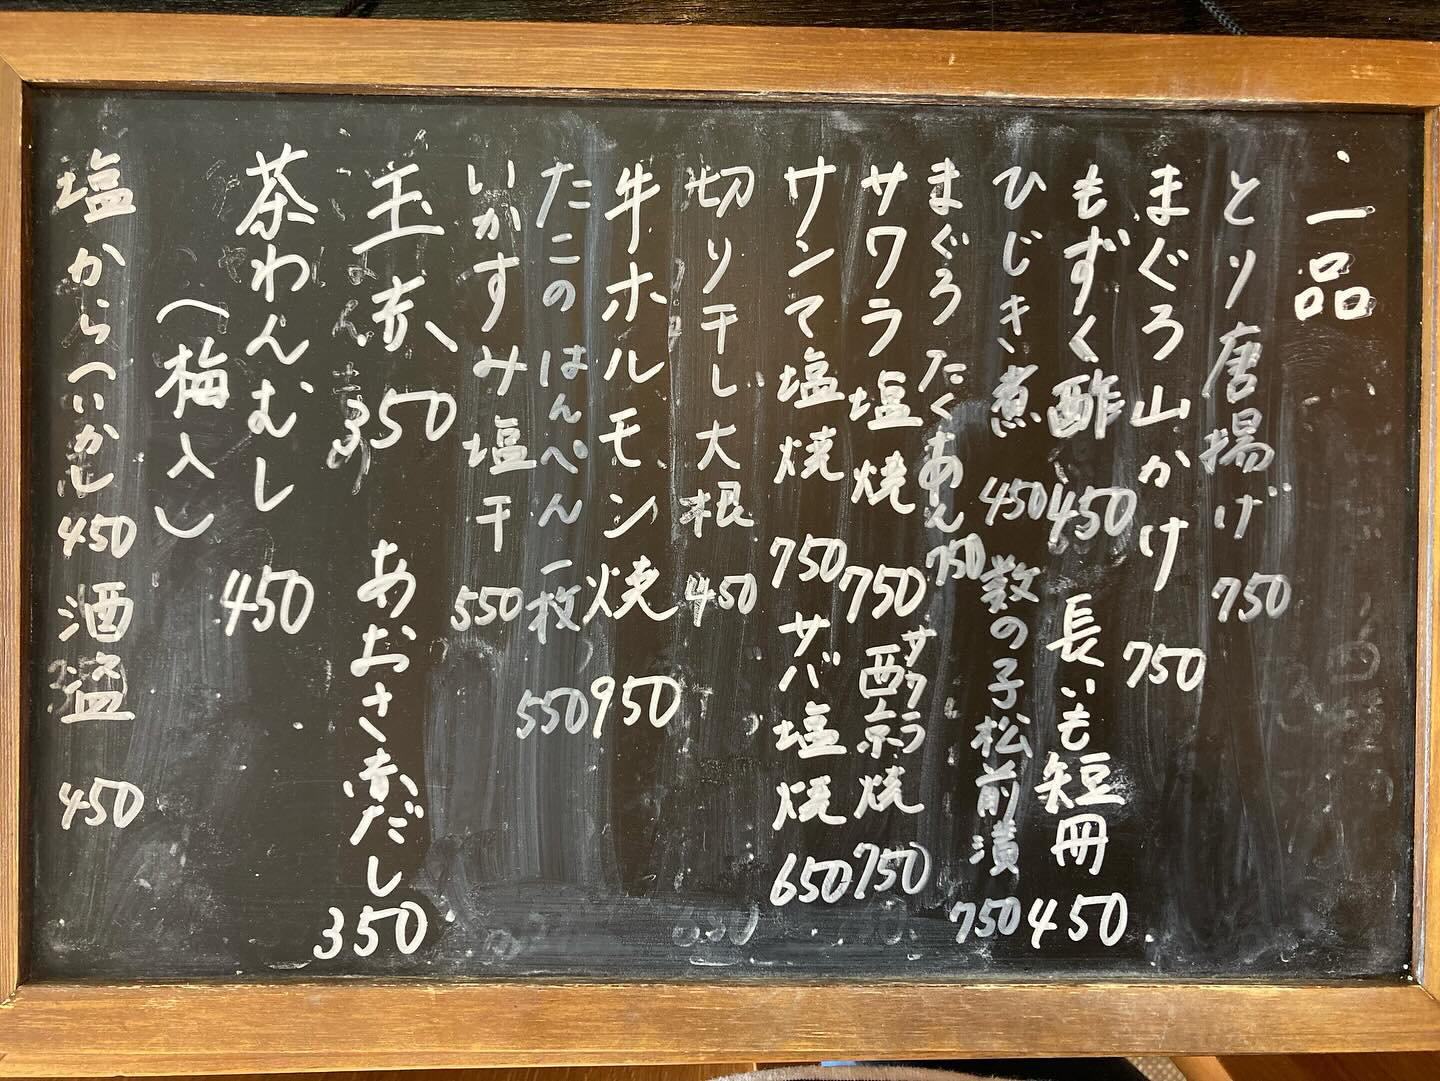 一品
とり唐揚げ 750
まぐろ山かけ 750
もずく酢 450 長いも短冊 450
ひじき煮 450 数の子松前漬 750
まぐろたくあん 750
サワラ塩焼 750 サワラ西京焼 750
サンマ塩焼 750 サバ塩焼 650
切り干し大根 450
牛ホルモン焼 950
たこのはんぺん一枚 550
いかすみ塩干 550
玉赤 350 あおさ赤だし 350
茶わんむし 450
(梅入)
塩から(いか) 450 酒盗 450